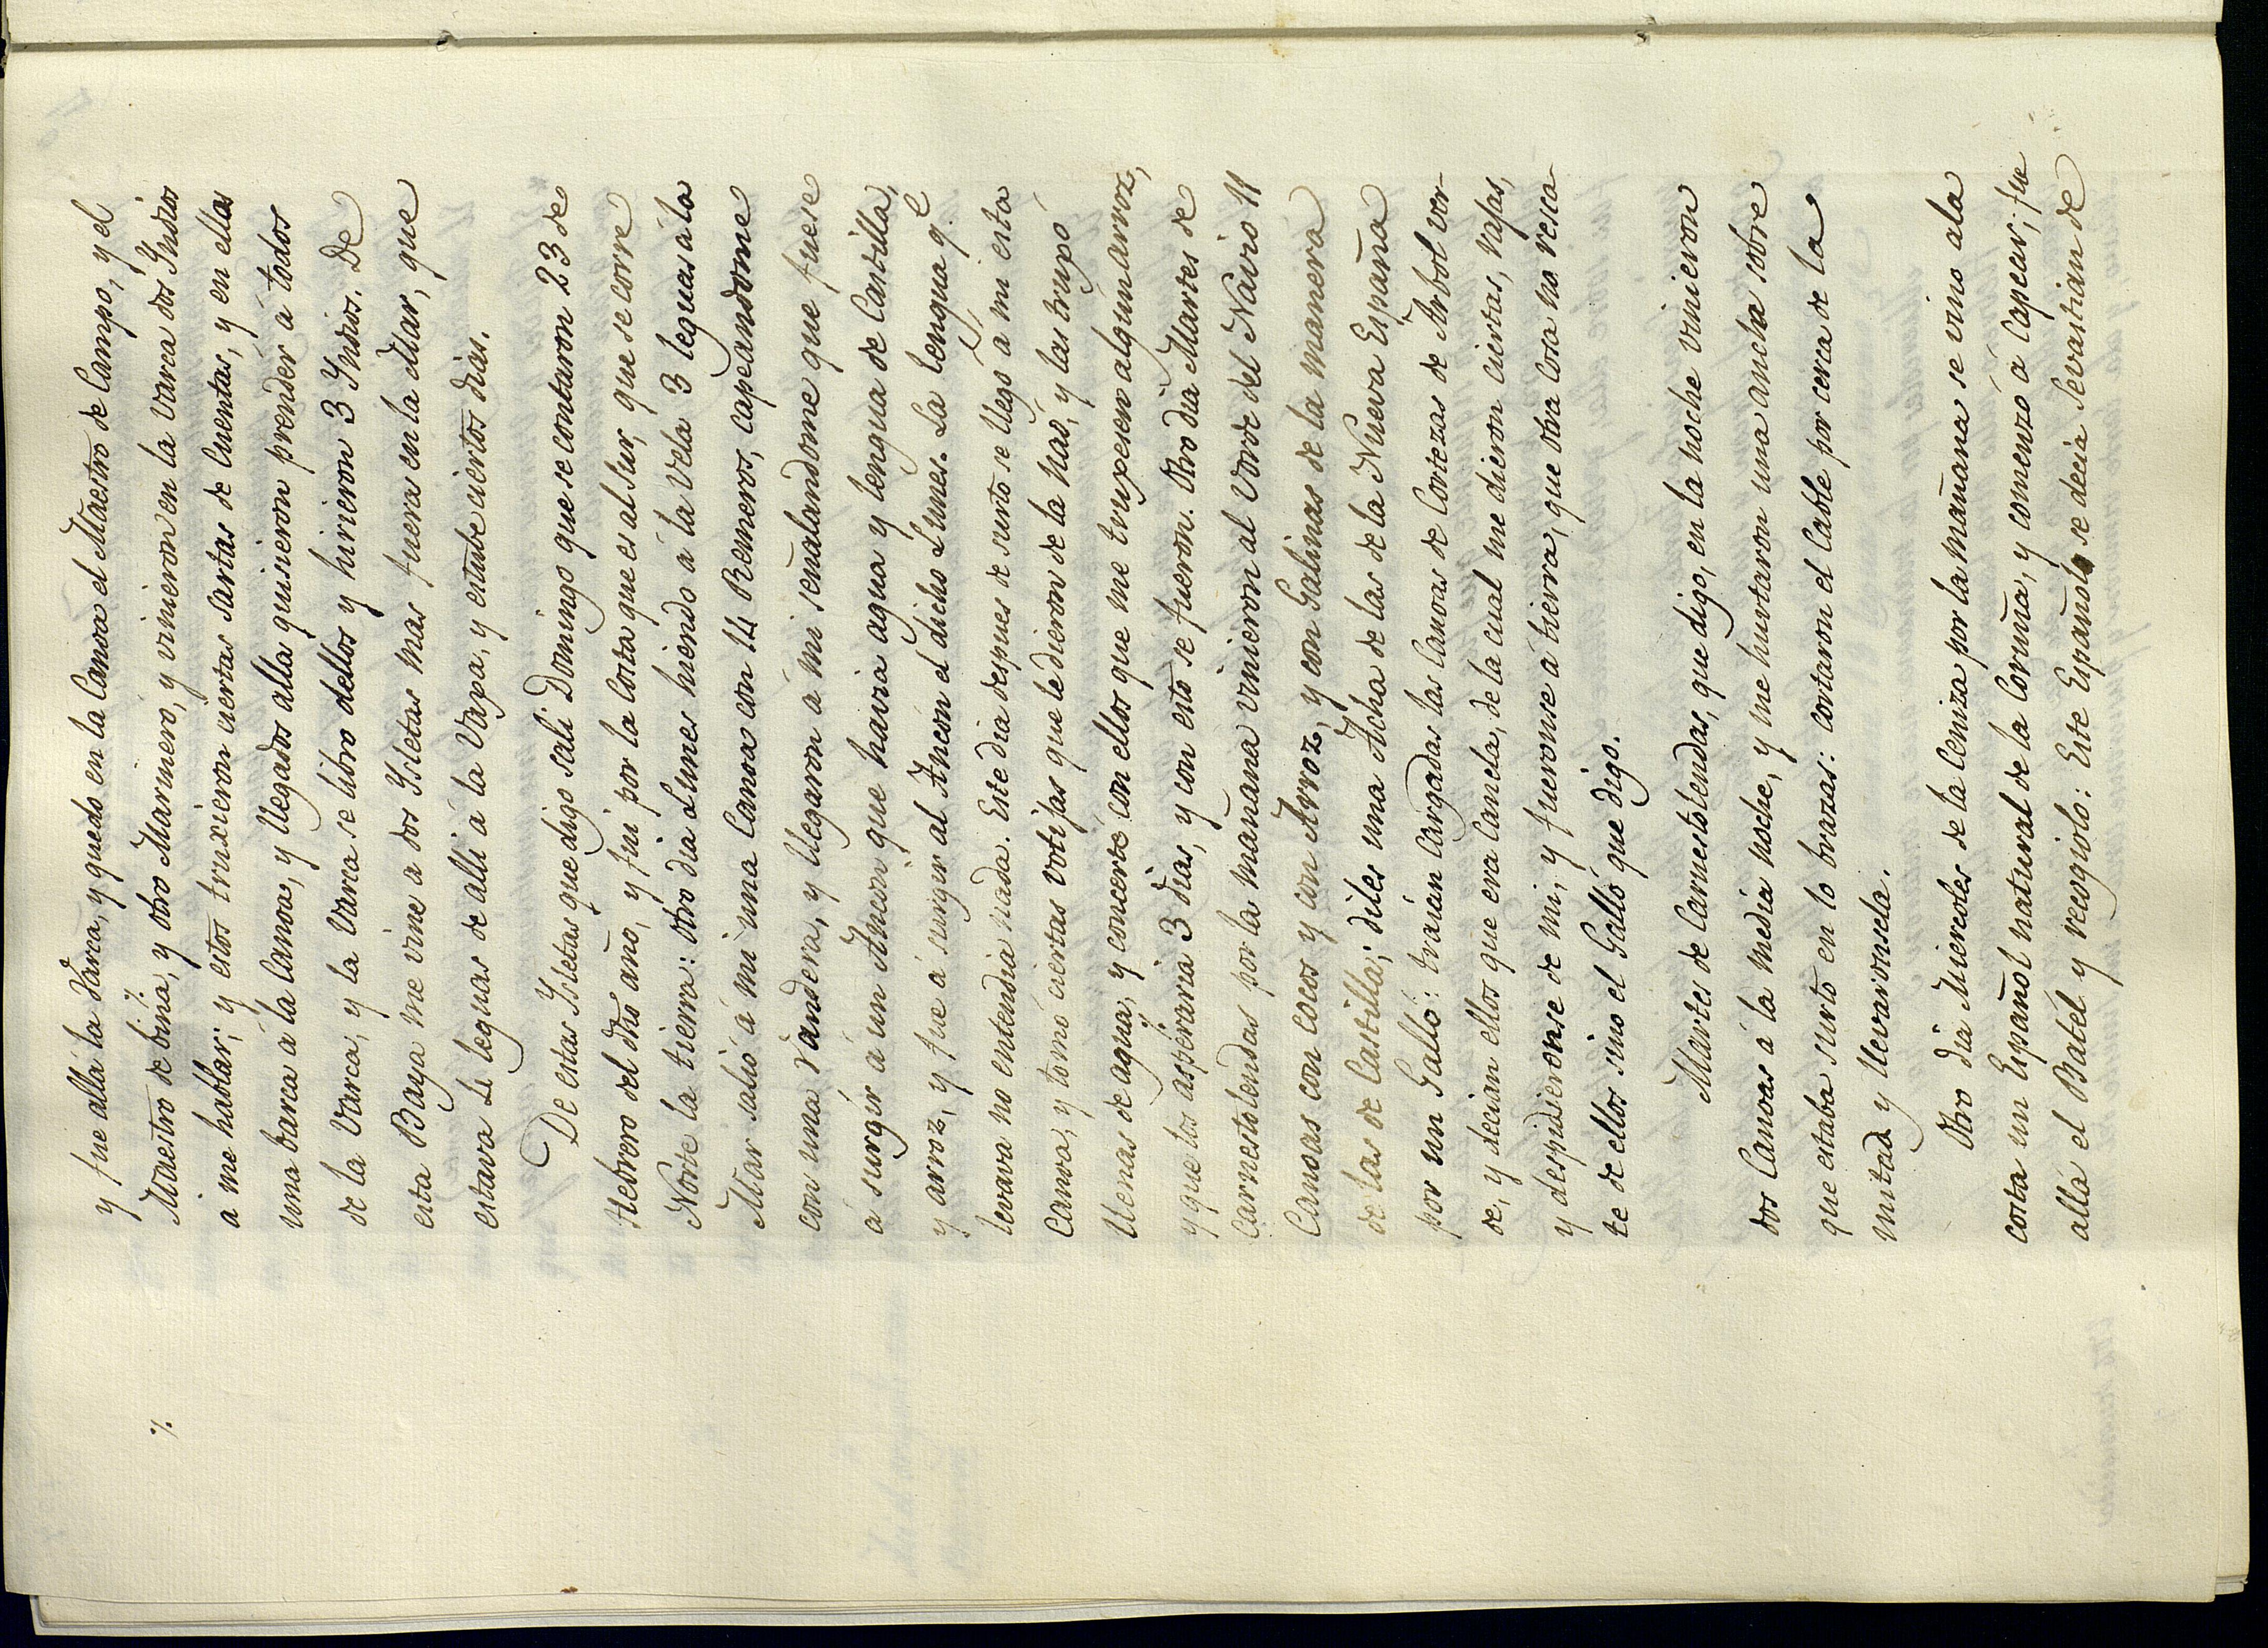 y fue allá la Varca, y quedo en la Canoa el Maestro de Campo, y el
Maestro de bina, y otro Marinero, y vinieron en la Varca dos Yndios
a me hablar; y estos truxieron ciertas sartas de Cuentas, y en ellas
una barca á la Canoa, y llegados alla quisieron prender á todos
de la Varca, y la Varca se libro dellos y hirieron 3 Yndios. De
esta Baya me vine a dos Ysletas mas fuera en la Mar, que
estava Le leguas de alli á la Vapa, y estube ciertos dias.
De estas Ysletas que digo sali Domingo que se contaron 23 de
Hebrero del dho año, y fui por la Costa que es al Sur, que se corre
Norte la tierra: otro dia Lunes hiendo á la Vela 3 leguas á la
Mar salió á mi una Canoa con 14 Remeros, capeandome
con una Vandera, y llegaron á mi señalandome que fuese
á surgir á un Ancon que havia agua y lengua de Castilla,
y arroz, y fue á surgir al Ancon el dicho Lunes. La lengua q.e
levava no entendia nada. Este dia despues de surto se llegó á mi esta
Canoa, y tomó ciertas votijas que le dieron de la nao, y las trupó
llenas de agua, y concerté con ellos que me trupesen algun arroz,
y que los asperaria 3 dias, y con esto se fueron. Otro dia Martes de
Carnestolendas por la mañana vinieron al Vorde del Navio 11
Canoas con cocos y con Arroz, y con Galinas de la manera
de las de Castilla; diles una Acha de las de la Nueva España
por un Galló: traien cargadas las Canoas de Cortezas de Arbol ver-
de, y decian ellos que era Canela, de la cual me dieron ciertas, rajas,
y despidieronse de mi, y fueronse á tierra, que otra cosa no resca
te de ellos sino el Galló que digo.
Martes de Carnestolendas, que digo, en la noche vinieron
dos Canoas á la media noche, y me hurtaron una ancha sobre
que estaba surto en lo brazas: cortaron el Cable por cerca de la
mitad y llevaronsela.
Otro dia Miercoles de la Ceniza por la mañana se vino a la
costa un Español natural de la Coruña, y comenzó á Capear; fue
allá el Batél y recogiolo: Este Español se decia Sevastian de
%